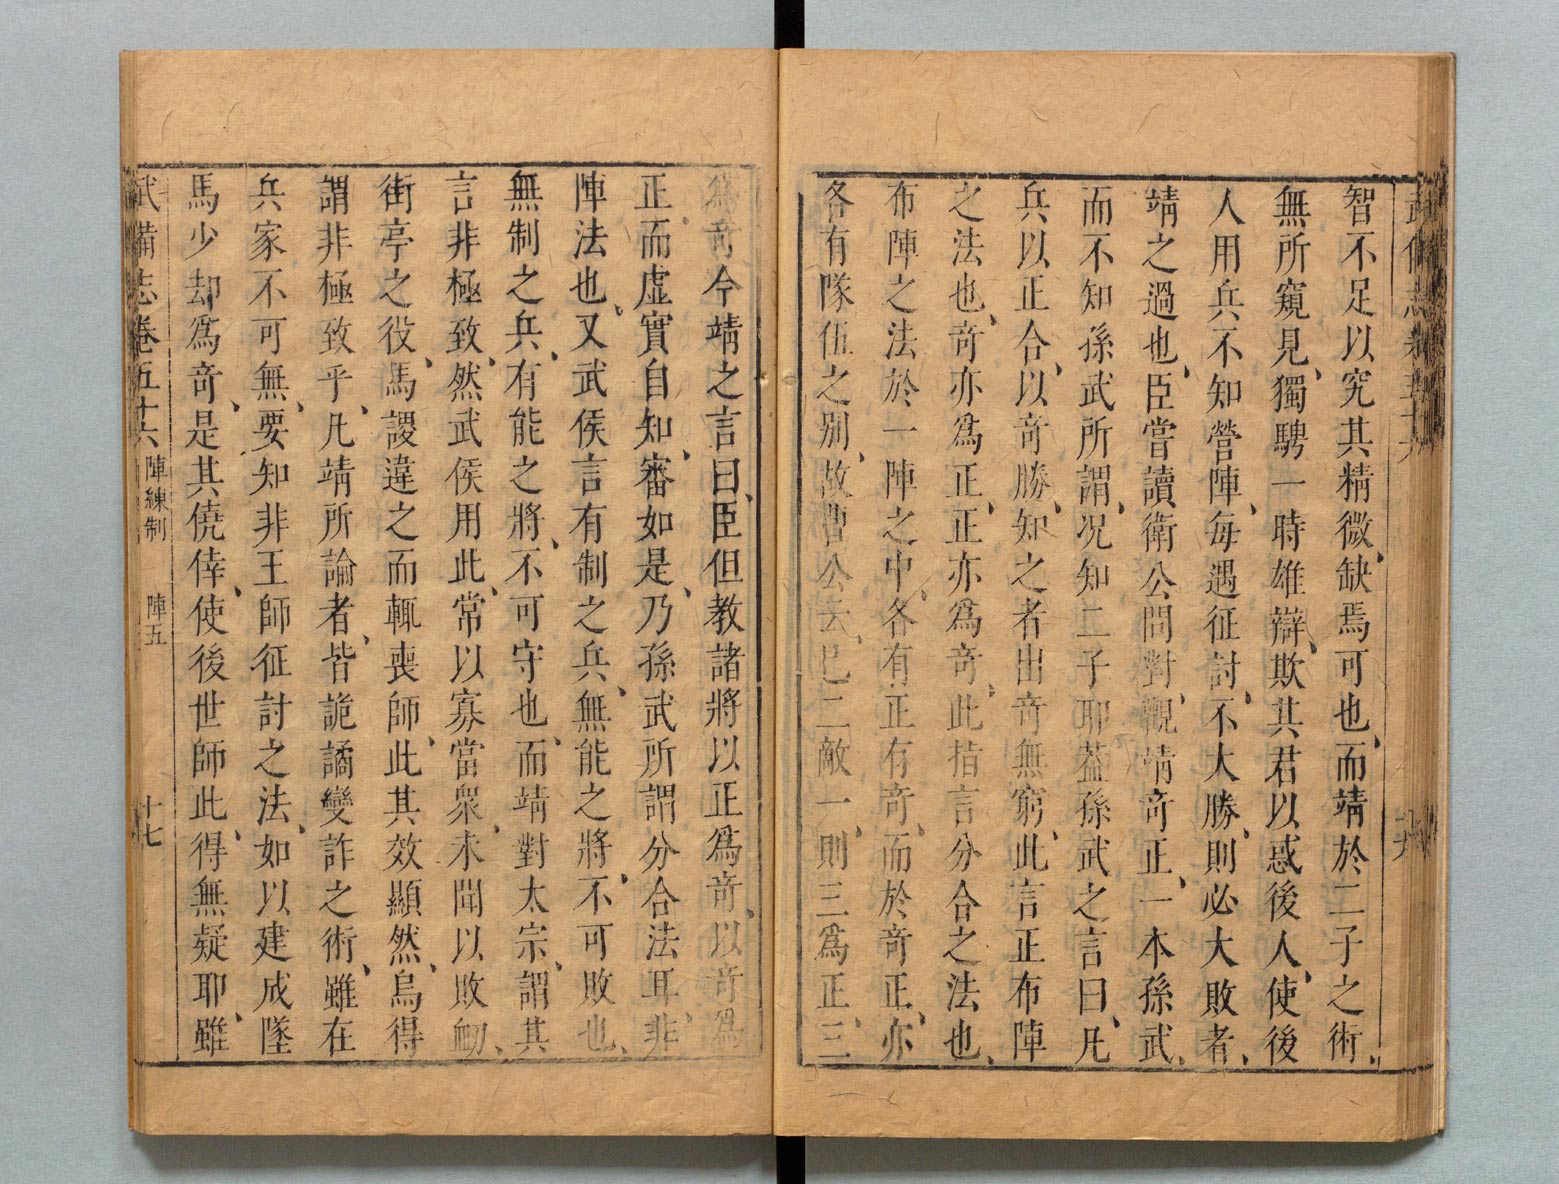 武備志卷五十六
智不足以究其精微缺焉可也而靖於二子之術
無所窺見獨騁一時雄辯欺其君以惑後人使後
人用兵不知營陣每遇征討不大勝則必大敗者
靖之過也臣嘗讀衛公問對觀靖竒正一本孫武
而不知孫武所謂况知二子耶葢孫武之言曰凡
兵以正合以竒勝知之者出竒無窮此言正布陣
之法也竒亦爲正正亦爲竒此指言分合之法也
布陣之法於一陣之中各有正有竒而於竒正亦
各有隊伍之别故曹公云已二敵一則三爲正三
爲竒今靖之言曰臣但教諸將以正爲竒以竒爲
正而虚實自知審如是乃孫武所謂分合法耳非
陣法也又武侯言有制之兵無能之將不可敗也
無制之兵有能之將不可守也而靖對太宗謂其
言非極致然武侯用此常以寡當衆未聞以敗衂
街亭之役馬謖違之而輒喪師此其效顯然烏得
謂非極致乎凡靖所論者皆詭譎變詐之術雖在
兵家不可無要知非王師征討之法如以建成墜
馬少却爲竒是其僥倖使後世師此得無疑耶雖
武備志卷五十六 陣練制 陣五 十七